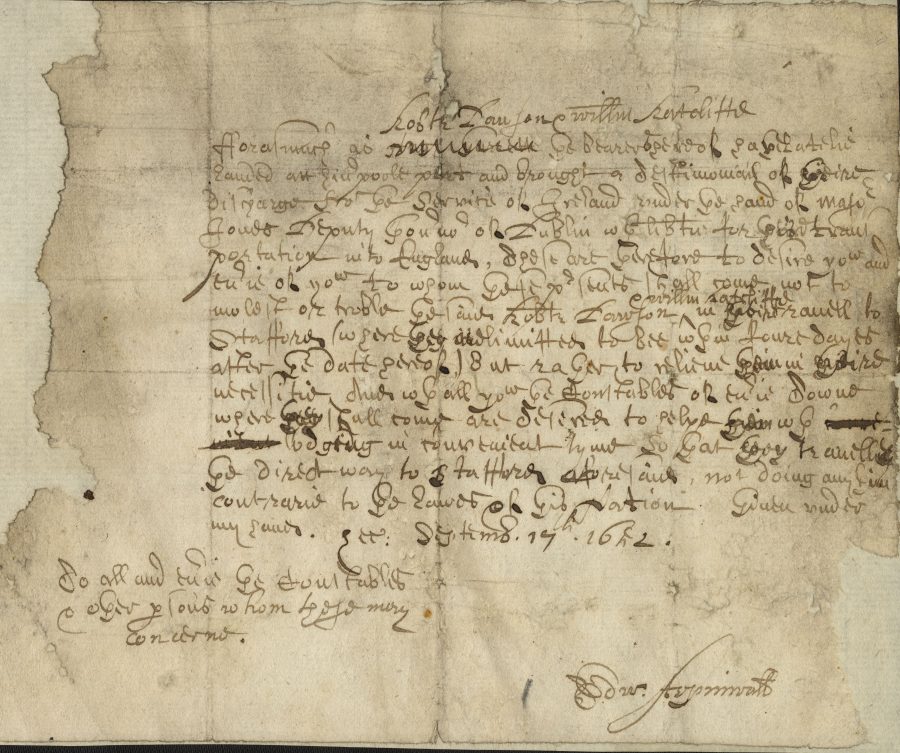 Robte Dawson & willm Ratcliffe
fforasmuch as ye bearers hereof have latelie
landed att Liverpoole port and brought a Testimoniall of theire
discharge from ye Service of Ireland under ye hand of Major
Jones Deputy Governor of Dublin wth libtie for their trans
portation into England, These are therefore to desire yow and
evrie of yow to whom these prsents shall come not to
& willm Ratcliffe
molest or troble the said Robte Dawson in their travell to
Stafford (where they are limitted to bee wthin foure dayes
after ye date hereof) But rather to relieve them in theire
necessitie And wthall yow ye Constables of evrie Towne
where they shall come are desired to helpe them wth
lodging in convenient tyme So that they travell
ye direct way to Stafford aforesaid, not doing any thing
contrarie to the Lawes of this Nation. Given under
my hand. Septemb. 17th. 1652.
To all and evrie ye Constables
& other psons whom these may
concerne.
Edw. Aspinwall